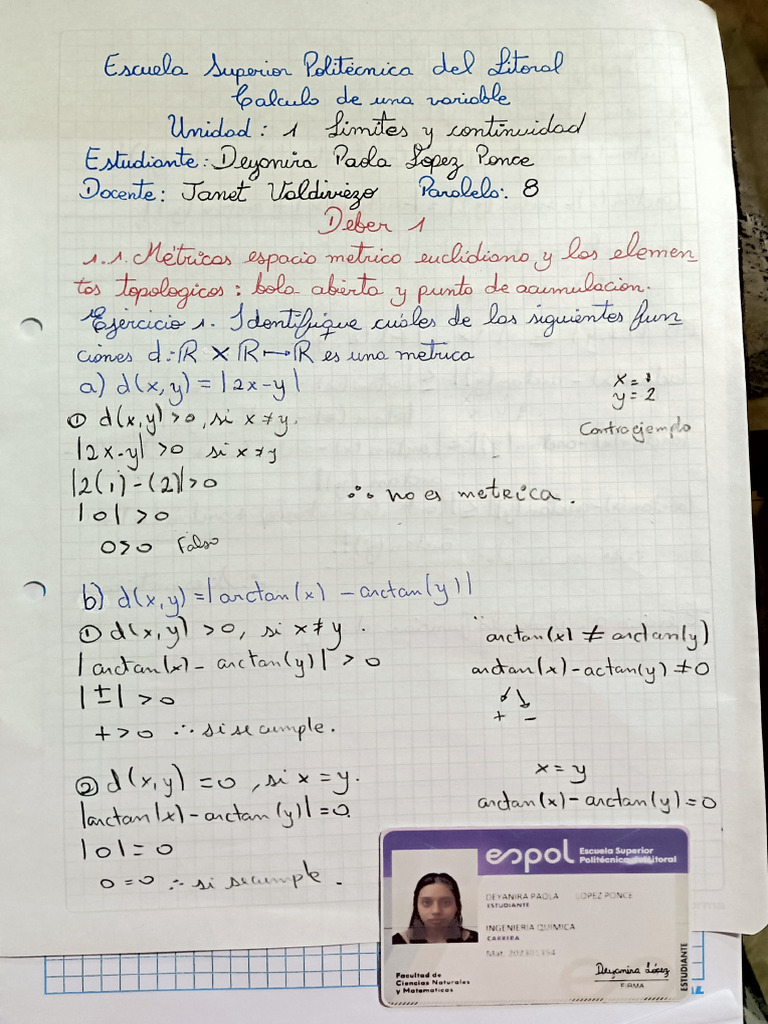 Escuela Superior Politécnica del Litoral
Calculo de una variable
Unidad: 1 Limites y continuidad
Estudiante: Deyanira Paola López Ponce
Docente: Janet Valdiviezo Paralelo: 8
Deber 1
1.1. Métricas espacio métrico euclidiano, y los elemen-
tos topologicos: bola abierta y punto de acumulación.
Ejercicio 1. Identifique cuáles de las siguientes fun-
ciones d: ℝ × ℝ ↦ ℝ es una metrica
a) d(x,y) = |2x-y|
x = 1
y = 2
Contraejemplo
① d(x,y) > 0, si x ≠ y.
|2x-y| > 0 si x ≠ y
|2(1)-(2)| > 0
∴ no es metrica.
|0| > 0
0>0 Falso
b) d(x,y) = |arctan(x) - arctan(y)|
① d(x,y) > 0, si x ≠ y.
arctan(x) ≠ arctan(y)
|arctan(x) - arctan(y)| > 0
arctan(x) - actan(y) ≠ 0
|±| > 0
+ -
+ > 0 ∴ si se cumple.
② d(x,y) = 0, si x = y.
x = y
|arctan(x) - arctan(y)| = 0.
arctan(x) - arctan(y) = 0
|0| = 0
0 = 0 ∴ si se cumple.
espol Escuela Superior
Politécnica del Litoral
DEYANIRA PAOLA LOPEZ PONCE
ESTUDIANTE
INGENIERIA QUIMICA
CARRERA
Facultad de
Ciencias Naturales
y Matemáticas
Deyanira López
FIRMA
ESTUDIANTE